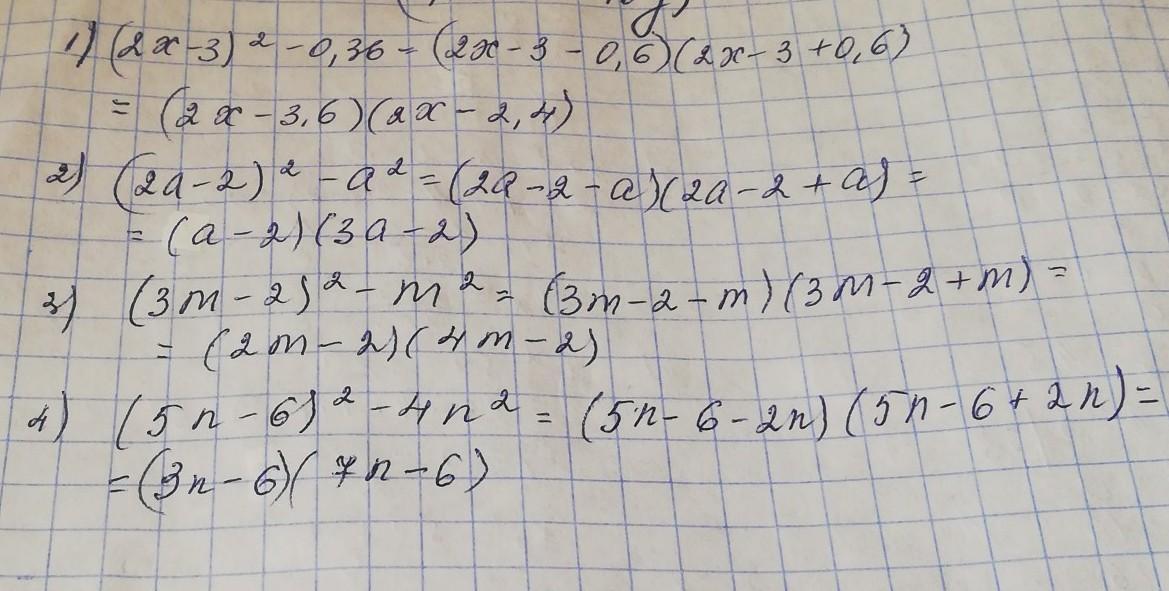 1) (2x-3)² - 0,36 = (2x-3-0,6)(2x-3+0,6)
= (2x-3,6)(2x-2,4)
2) (2a-2)² - a² = (2a-2-a)(2a-2+a) =
= (a-2)(3a-2)
3) (3m-2)² - m² = (3m-2-m)(3m-2+m) =
= (2m-2)(4m-2)
4) (5n-6)² - 4n² = (5n-6-2n)(5n-6+2n) =
= (3n-6)(7n-6)